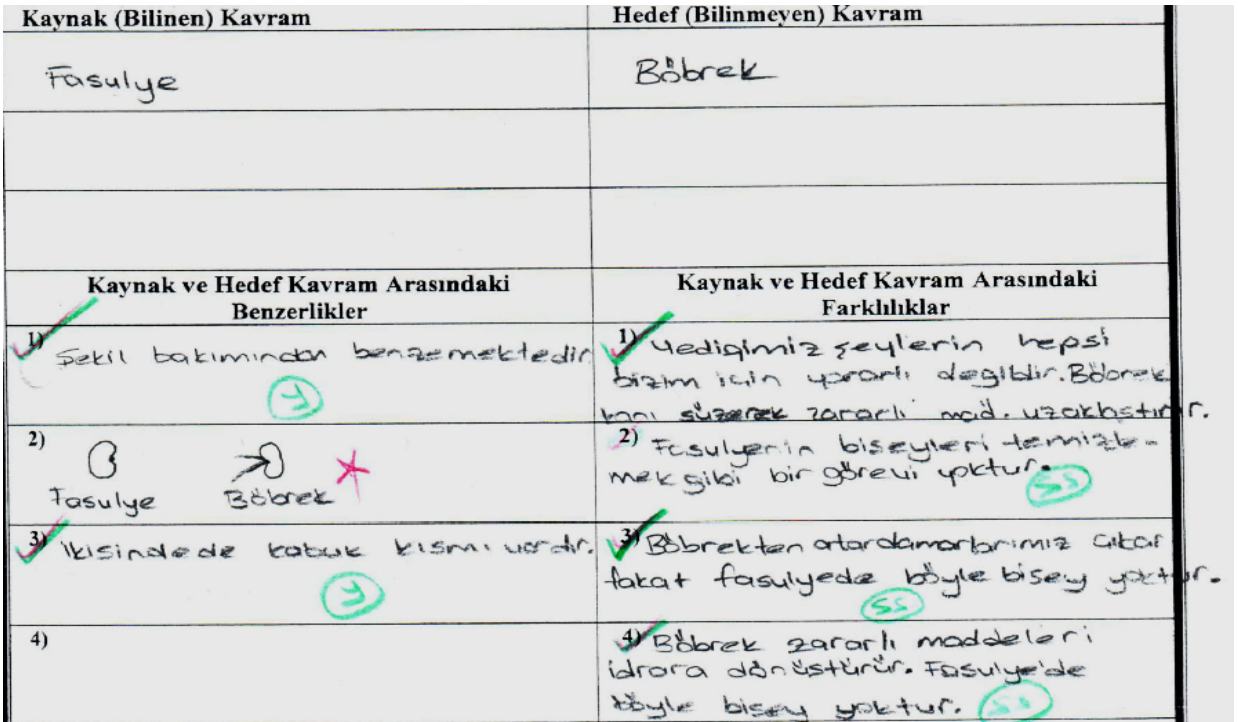 Kaynak (Bilinen) Kavram
Hedef (Bilinmeyen) Kavram
Fasulye
Böbrek
Kaynak ve Hedef Kavram Arasındaki
Benzerlikler
Kaynak ve Hedef Kavram Arasındaki
Farklılıklar
1) Şekil bakımından benzemektedir
Y
1) Yediğimiz şeylerin hepsi
bizim için yararlı değildir. Böbrek
kanı süzerek zararlı mad. uzaklaştırır.
2)
Fasulye Böbrek
2) Fasulyenin bişeyleri temizle-
mek gibi bir görevi yoktur.
SS
3) ikisindede kabuk kısmı vardır.
Y
3) Böbrekten atardamarlarımız çıkar
fakat fasulyede böyle bişey yoktur.
SS
4)
4) Böbrek zararlı maddeleri
idrara dönüştürür. Fasulye'de
böyle bişey yoktur.
SS